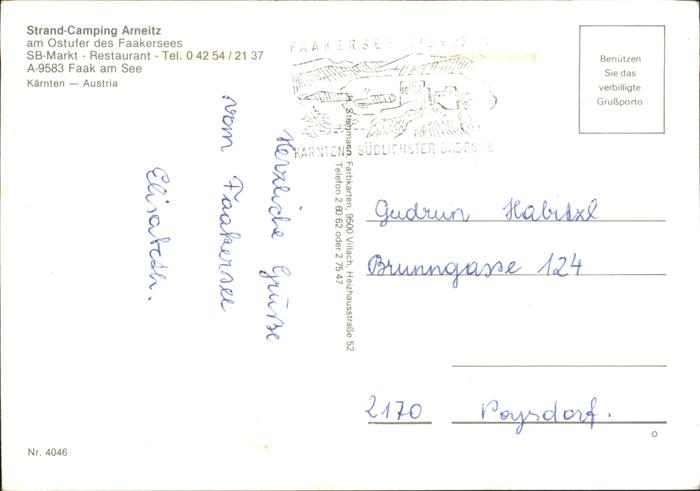 Strand-Camping Arneitz
am Ostufer des Faakersees
SB-Markt - Restaurant - Tel. 0 42 54 / 21 37
A-9583 Faak am See
Kärnten — Austria
FAAKERSEE
KÄRNTENS SÜDLICHSTER BADESEE
Benützen
Sie das
verbilligte
Grußporto
Herzliche Grüße
vom Faakersee
Elisabeth.
H. Steinmann, Farbkarten, 9500 Villach, Heizhausstraße 52
Telefon 2 60 62 oder 2 75 47
Gudrun Habitzl
Brunngasse 124
2170 Poysdorf.
Nr. 4046